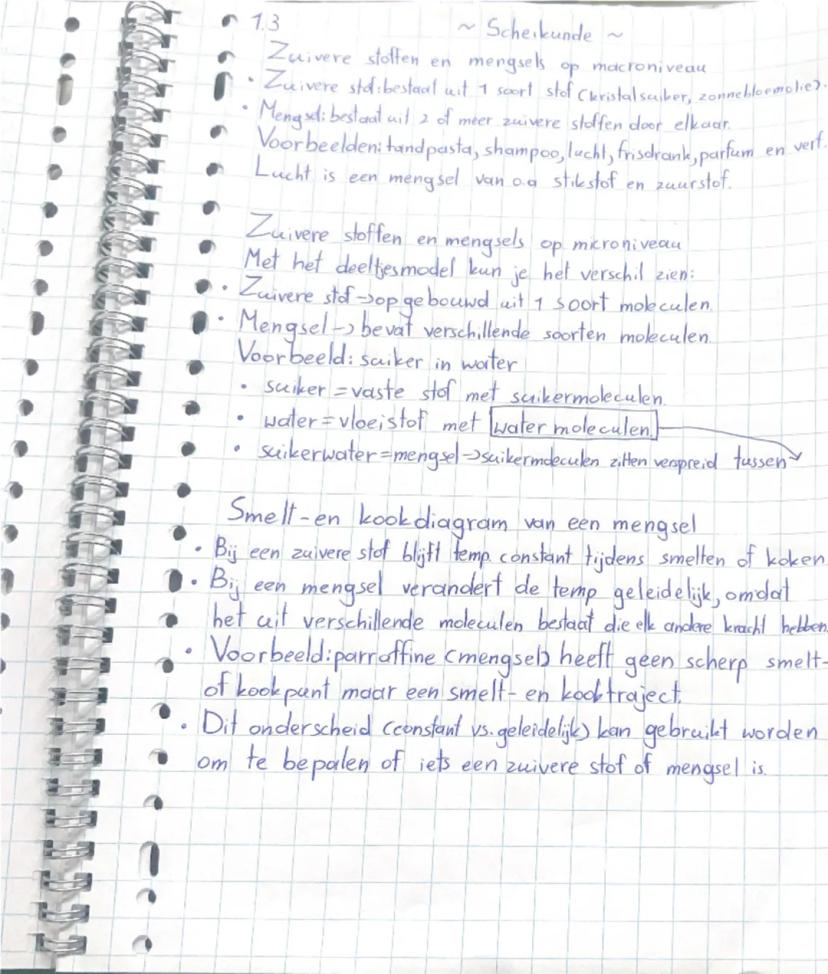 1.3 ~ Scheikunde ~
Zuivere stoffen en mengsels op macroniveau
• Zuivere stof: bestaat uit 1 soort stof (kristalsuiker, zonnebloemolie).
• Mengsel: bestaat uit 2 of meer zuivere stoffen door elkaar.
Voorbeelden: tandpasta, shampoo, lucht, frisdrank, parfum en verf.
Lucht is een mengsel van o.a stikstof en zuurstof.
Zuivere stoffen en mengsels op microniveau
Met het deeltjesmodel kun je het verschil zien:
• Zuivere stof → opgebouwd uit 1 soort moleculen.
• Mengsel → bevat verschillende soorten moleculen.
Voorbeeld: suiker in water
• suiker = vaste stof met suikermoleculen.
• water = vloeistof met watermoleculen.
• suikerwater = mengsel → suikermoleculen zitten verspreid tussen
Smelt- en kookdiagram van een mengsel
• Bij een zuivere stof blijft temp. constant tijdens smelten of koken
• Bij een mengsel verandert de temp geleidelijk, omdat
het uit verschillende moleculen bestaat die elk andere kracht hebben.
• Voorbeeld: parraffine (mengsel) heeft geen scherp smelt-
of kookpunt maar een smelt- en kooktraject.
• Dit onderscheid (constant vs. geleidelijk) kan gebruikt worden
om te bepalen of iets een zuivere stof of mengsel is.